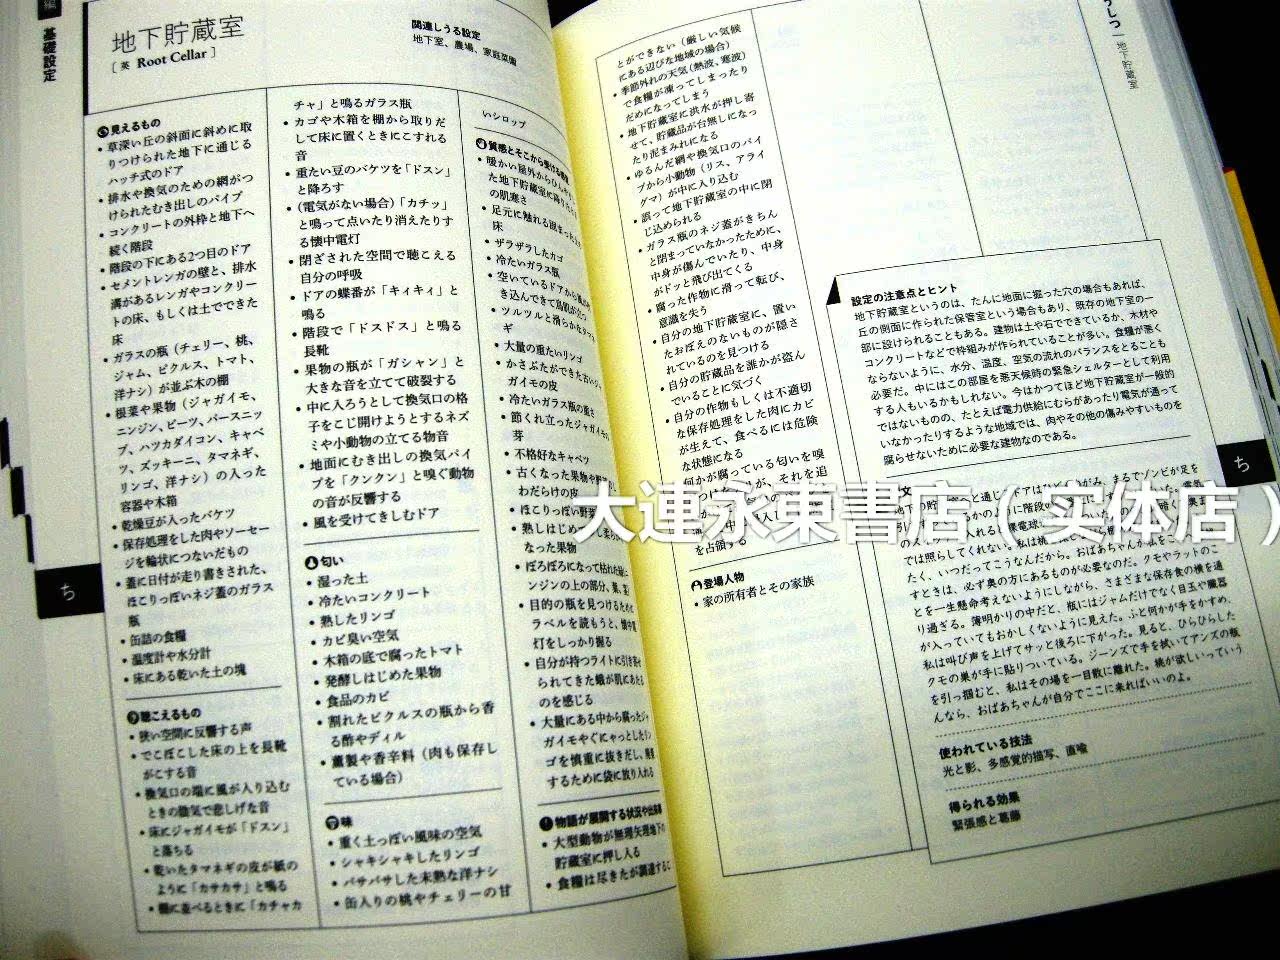 編
基礎設定
地下貯蔵室
[英 Root Cellar]
関連しうる設定
地下室、農場、家庭菜園
見えるもの
• 草深い丘の斜面に斜めに取
りつけられた地下に通じる
ハッチ式のドア
• 排水や換気のための網がつ
けられたむき出しのパイプ
• コンクリートの外枠と地下へ
続く階段
• 階段の下にある2つ目のドア
• セメントレンガの壁と、排水
溝があるレンガやコンクリー
トの床、もしくは土でできた
床
• ガラスの瓶（チェリー、桃、
ジャム、ピクルス、トマト、
洋ナシ）が並ぶ木の棚
• 根菜や果物（ジャガイモ、
ニンジン、ビーツ、パースニッ
プ、ハツカダイコン、キャベ
ツ、ズッキーニ、タマネギ、
リンゴ、洋ナシ）の入った
容器や木箱
• 乾燥豆が入ったバケツ
• 保存処理をした肉やソーセー
ジを輪状につないだもの
• 蓋に日付が走り書きされた、
ほこりっぽいネジ蓋のガラス
瓶
• 缶詰の食糧
• 温度計や水分計
• 床にある乾いた土の塊
聴こえるもの
• 狭い空間に反響する声
• でこぼこした床の上を長靴
がこする音
• 換気口の端に風が入り込む
ときの陰気で悲しげな音
• 床にジャガイモが「ドスン」
と落ちる
• 乾いたタマネギの皮が紙の
ように「カサカサ」と鳴る
• 棚に並べるときに「カチャカ
チャ」と鳴るガラス瓶
• カゴや木箱を棚から取りだ
して床に置くときにこすれる
音
• 重たい豆のバケツを「ドスン」
と降ろす
• （電気がない場合）「カチッ」
と鳴って点いたり消えたりす
る懐中電灯
• 閉ざされた空間で聴こえる
自分の呼吸
• ドアの蝶番が「キィキィ」と
鳴る
• 階段で「ドスドス」と鳴る
長靴
• 果物の瓶が「ガシャン」と
大きな音を立てて破裂する
• 中に入ろうとして換気口の格
子をこじ開けようとするネズ
ミや小動物の立てる物音
• 地面にむき出しの換気パイ
プを「クンクン」と嗅ぐ動物
の音が反響する
• 風を受けてきしむドア
匂い
• 湿った土
• 冷たいコンクリート
• 熟したリンゴ
• カビ臭い空気
• 木箱の底で腐ったトマト
• 発酵しはじめた果物
• 食品のカビ
• 割れたピクルスの瓶から香
る酢やディル
• 燻製や香辛料（肉も保存し
ている場合）
味
• 重く土っぽい風味の空気
• シャキシャキしたリンゴ
• パサパサした未熟な洋ナシ
• 缶入りの桃やチェリーの甘
いシロップ
質感とそこから受ける感覚
• 暖かい屋外からひんやり
た地下貯蔵室に降りたとき
の肌寒さ
• 足元に触れる固まった土の
床
• ザラザラしたカゴ
• 冷たいガラス瓶
• 空いているドアから風が吹
き込んできて鳥肌が立つ
• ツルツルと滑らかなタマネ
ギ
• 大量の重たいリンゴ
• かさぶたができた古いジャ
ガイモの皮
• 冷たいガラス瓶の重さ
• 節くれ立ったジャガイモの
芽
• 不格好なキャベツ
• 古くなった果物や野菜の
わだらけの皮
• ほこりっぽい野菜
• 熟しはじめて柔らか
なった果物
• ぼろぼろになって枯れた
ンジンの上の部分、葉、茎
• 目的の瓶を見つけるために
ラベルを読もうと、懐中電
灯をしっかり握る
• 自分が持つライトに引き寄せ
られてきた蛾が肌にあたる
のを感じる
• 大量にある中から腐ったジャ
ガイモやぐにゃっとしたリン
ゴを慎重に抜きだし、廃棄
するために袋に放り入れる
物語が展開する状況や出来事
• 大型動物が無理矢理地下の
貯蔵室に押し入る
• 食糧は尽きたが調達するこ
とができない（厳しい気候
にある辺ぴな地域の場合）
• 季節外れの天気（熱波、寒波）
で食糧が凍ってしまったり
だめになってしまう
• 地下貯蔵室に洪水が押し寄
せて、貯蔵品が台無しになっ
たり泥まみれになる
• ゆるんだ網や換気口のパイ
プから小動物（リス、アライ
グマ）が中に入り込む
• 誤って地下貯蔵室の中に閉
じ込められる
• ガラス瓶のネジ蓋がきちん
と閉まっていなかったために、
中身が傷んでいたり、中身
がドッと飛び出てくる
• 腐った作物に滑って転び、
意識を失う
• 自分の地下貯蔵室に、置い
たおぼえのないものが隠さ
れているのを見つける
• 自分の貯蔵品を誰かが盗ん
でいることに気づく
• 自分の作物もしくは不適切
な保存処理をした肉にカビ
が生えて、食べるには危険
な状態になる
• 何かが腐っている匂いを嗅
を占領する
登場人物
• 家の所有者とその家族
うしつ｜地下貯蔵室
設定の注意点とヒント
地下貯蔵室というのは、たんに地面に掘った穴の場合もあれば、
丘の側面に作られた保管室という場合もあり、既存の地下室の一
部に設けられることもある。建物は土や石でできているか、木材や
コンクリートなどで枠組みが作られていることが多い。食糧が悪く
ならないように、水分、温度、空気の流れのバランスをとることも
必要だ。中にはこの部屋を悪天候時の緊急シェルターとして利用
する人もいるかもしれない。今はかつてほど地下貯蔵室が一般的
ではないものの、たとえば電力供給にむらがあったり電気が通って
いなかったりするような地域では、肉やその他の傷みやすいものを
腐らせないために必要な建物なのである。
では照らしてくれない。私は桃
たく、いつだってこうなんだから。おばあちゃんが
すときは、必ず奥の方にあるものが必要なのだ。クモやラットのこ
とを一生懸命考えないようにしながら、さまざまな保存食の棟を通
り過ぎる。薄明かりの中だと、瓶にはジャムだけでなく目玉や臓器
が入っていてもおかしくないように見えた。ふと何かが手をかすめ、
私は叫び声を上げてサッと後ろに下がった。見ると、ひらひらした
クモの巣が手に貼りついている。ジーンズで手を拭いてアンズの瓶
を引っ掴むと、私はその場を一目散に離れた。桃が欲しいっていう
んなら、おばあちゃんが自分でここに来ればいいのよ。
使われている技法
光と影、多感覚的描写、直喩
得られる効果
緊張感と葛藤
ち
ち
大連永東書店（实体店）